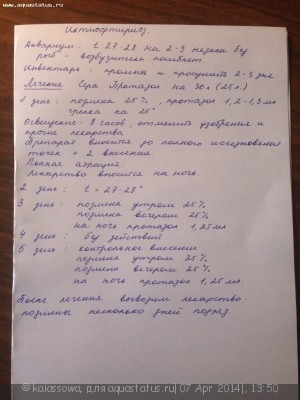 www.aquastatus.ru
Ихтиофтириоз.
Аквариум: t 27-28 на 2-3 недели без
рыб - возбудитель погибает.
Инвентарь: промыть и просушить 2-3 дня
Лечение Сера Протазол на 30л (25л)
1 день: подмена 25%, протазол 1,2-1,3 мл
на 25°
Освещение - 8 часов, отменить удобрения и
прочие лекарства.
Препарат вносится до полного исчезновения
точек + 2 внесения.
Полная аэрация.
Лекарство вносится на ночь.
2 день: t = 27-28°
3 день: подмена утром 25%
подмена вечером 25%
на ночь протазол 1,25мл
4 день: без действий
5 день: контрольное внесение
подмена утром 25%
подмена вечером 25%
на ночь протазол 1,25 мл.
После лечения выводим лекарство:
подмены несколько дней подряд.
© kaiassowa, для aquastatus.ru[ 07 Apr 2014], 13:50